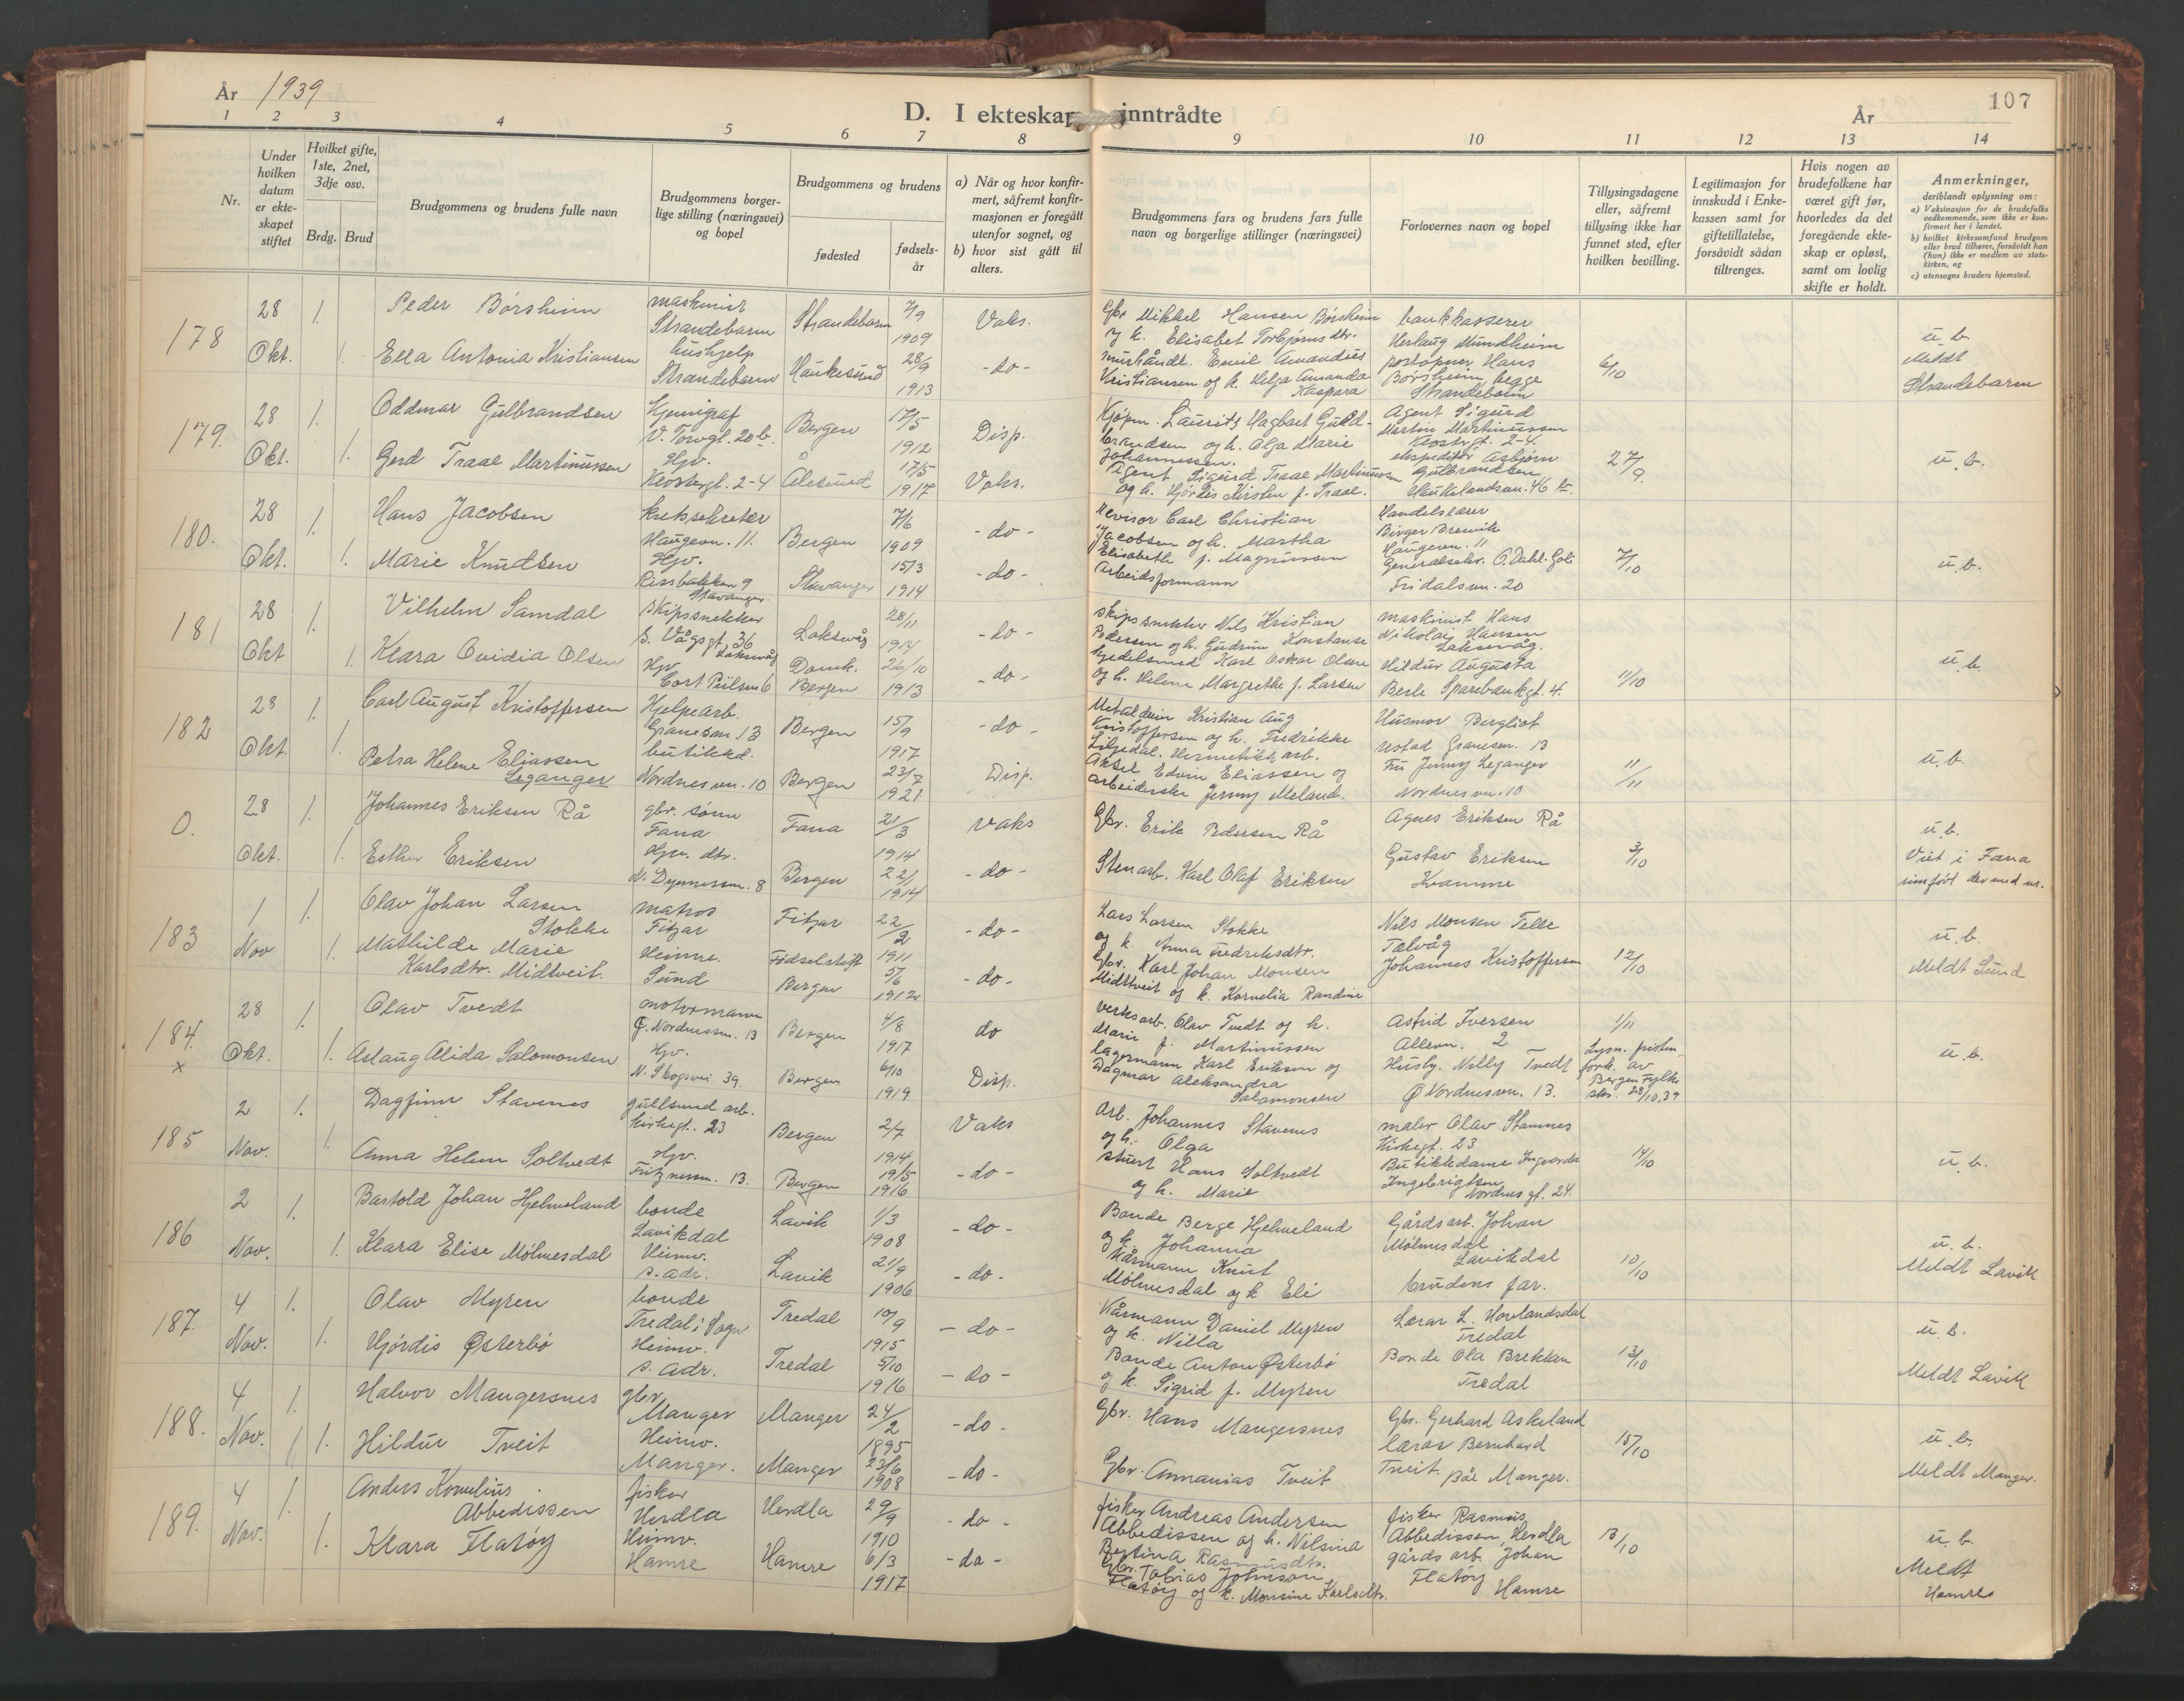 År 1939
D. I ekteskap inntrådte
År
107
1 2 3 4 5 6 7 8 9 10 11 12 13 14
Nr.
Under hvilken datum er ekteskapet stiftet
Hvilket gifte, 1ste, 2net, 3dje osv.
Brdg. Brud
Brudgommens og brudens fulle navn
Brudgommens borgerlige stilling (næringsvei) og bopel
Brudgommens og brudens
fødested
fødselsår
a) Når og hvor konfirmert, såfremt konfirmasjonen er foregått utenfor sognet, og
b) hvor sist gått til alters.
Brudgommens fars og brudens fars fulle navn og borgerlige stillinger (næringsvei)
Forlovernes navn og bopel
Tillysingsdagene eller, såfremt tillysing ikke har funnet sted, efter hvilken bevilling.
Legitimasjon for innskudd i Enkekassen samt for giftetillatelse, forsåvidt sådan tiltrenges.
Hvis nogen av brudefolkene har været gift før, hvorledes da det foregående ekteskap er opløst, samt om lovlig skifte er holdt.
Anmerkninger,
deriblandt oplysning om:
a) Vaksinasjon for de brudefolks vedkommende, som ikke er konfirmert her i landet.
b) hvilket kirkesamfund brudgom eller brud tilhører, forsåvidt han (hun) ikke er medlem av statskirken, og
c) utensogns bruders hjemsted.
178
28 Okt. 1. 1.
Peder Børsheim
maskinist
Strandebarm
Strandebarm
7/9 1909
Vaks.
Gbr Mikkel Hansen Børsheim
og h. Elisabet Torbjørnsdtr.
bankkasserer
Herlaug Mundheim
Ella Antonia Kristiansen
hushjelp
Strandebarm
Haukesund
28/9 1913
-do-
murhåndt. Emil Amandus
Kristiansen og h. Helga Amanda
Kaspara
postopner Hans
Børsheim begge
Strandebarm
6/10
u. b.
Meldt
Strandebarm
179.
28 Okt. 1. 1.
Oddmar Gulbrandsen
Kjemigraf
V. Torvgt. 20 b.
Bergen
17/5 1912
Disp.
Kjøpm. Laurits Hagbart Guld-
brandsen og h. Olga Marie
Johannessen.
Agent Sigurd
Martin Martinussen
Klostergt. 2-4.
Gerd Traae Martinussen
Hjv.
Klostergt. 2-4
Ålesund
17/5 1917
Vaks.
Agent Sigurd Traae Martinussen
og h. Hjørdis Kirsten f. Traae.
ekspeditør Asbjørn
Gulbrandsen
Haukelandsvn. 46 b.
27/9.
u. b.
180.
28 Okt. 1. 1.
Hans Jacobsen
kretssekretær
Haugevn. 11.
Bergen
7/6 1909
-do-
Revisor Carl Christian
Jacobsen og h. Martha
Elisabeth f. Magnussen
Handelslærer
Birger Brewik
Haugevn. 11
Marie Knudsen
Hjv.
Rissbakken 9
Stavanger
Stavanger
15/3 1914
-do-
Arbeidsformann
Generalsekr. O. Dahl-Goli
Fridalsvn. 20
7/10
u. b.
181
28 Okt 1. 1.
Vilhelm Samdal
skipssnekker
S. Vågsgt. 36
Laksevåg
Laksevåg
28/11 1914
-do-
skipssnekker Nils Kristian
Pedersen og h. Gudrun Konstanse
maskinist Hans
Nikolai Hansen
Laksevåg.
Klara Ovidia Olsen
Hjv.
Cort Piilsm. 6
Domk.
Bergen
26/10 1913
-do-
Gjedelsmed Karl Oskar Olsen
og h. Helene Margrethe f. Larsen
Hildur Augusta
Berle Sparebankgt. 4.
11/10
u. b.
182
28 Okt. 1. 1.
Carl August Kristoffersen
Hjelpearb.
Granesvn. 13
Bergen
15/9 1917
-do-
Metaldrein Kristian Aug
Kristoffersen og h. Fredrikke
Liljedal.
Husmor Bergliot
Ustad Granesvn. 13
Petra Helene Eliassen
Leganger
butikkd.
Nordnesvn. 10
Bergen
23/7 1921
Disp.
Hermetikkarb.
Aksel Edvin Eliassen og
arbeiderske Jenny Meland.
Fru Jenny Leganger
Nordnesvn. 10
11/11
u. b.
0.
28 Okt. 1. 1.
Johannes Eriksen Rå
gbr. sønn
Fana
Fana
21/3 1914
Vaks
Gbr. Erik Pedersen Rå
Agnes Eriksen Rå
Esther Eriksen
Hjv. dtr.
N. Dynnessm. 8
Bergen
22/1 1914
-do-
Stenarb. Karl Olaf Eriksen
Gustav Eriksen
Kvamme
3/10
u. b.
Viet i Fana
innført der med nr.
183
1 Nov 1. 1.
Olav Johan Larsen
Stokke
matros
Fitjar
Fitjar
22/2 1911
-do-
Lars Larsen Stokke
og h. Anna Fredriksdtr.
Nils Monsen Telle
Telvåg
Mathilde Marie
Karlsdtr. Midtveit.
Heimv.
Sund
Fødselstift
Bergen
5/6 1912
-do-
Gbr. Karl Johan Monsen
Midttveit og h. Kornelia Randine
Johannes Kristoffersen
12/10
u. b.
Meldt Sund
184.
x
28 Okt. 1. 1.
Olav Tvedt
motormann
Ø. Nordnessm. 13
Bergen
4/8 1917
do
Verksarb. Olav Tvedt og h.
Marie f. Martinussen
Astrid Iversen
Alleen. 2
Aslaug Alida Salomonsen
Hjv.
N. Skogsvei 39.
Bergen
6/10 1919
Disp.
lagermann Karl Eriksen og
Dagmar Aleksandra
Salamonsen
Husby. Nelly Tvedt
Ø Nordnesvn. 13.
1/11
Lysn. fristen
fork. av
Bergen Fylke
skr. 28/10.39
u. b.
185
2 Nov. 1. 1.
Dagfinn Stavenes
gullsmed arb.
Kirkegt. 23
Bergen
2/7 1914
Vaks
Arb. Johannes Stavenes
og h. Olga
maler Olav Stamnes
Kirkegt. 23
Anna Helene Soltvedt
Hjv.
Fritznersm. 13.
Bergen
19/5 1916
-do-
stuert Hans Soltvedt
og h. Marie
Butikkdame Ingvarda
Ingebrigtsen
Nordnesgt. 24.
14/10
u. b.
186
2 Nov. 1. 1.
Bartold Johan Hjelmeland
bonde
Lavikdal
Lavik
1/3 1908
-do-
Bonde Berge Hjelmeland
og h. Johanna
Gårdsarb. Johan
Mølmesdal
Lavikdal
Klara Elise Mølmesdal
Heimv.
s. adr.
Lavik
21/9 1906
-do-
Kårmann Knut
Mølmesdal og h Eli
brudens far.
10/10
u. b.
Meldt Lavik
187.
4 Nov. 1. 1.
Olav Myren
bonde
Tredal i Sogn
Tredal
10/9 1915
-do-
Kårmann Daniel Myren
og h. Nilla
Lærar L. Hovlandsdal
Tredal
Hjørdis Østerbø
Heimv.
s. adr.
Tredal
5/10 1916
-do-
Bonde Anton Østerbø
og h. Sigrid f. Myren
Bonde Ola Brekkan
Tredal
13/10
u. b.
Meldt Lavik
188.
4 Nov. 1. 1.
Halvor Mangersnes
gbr.
Manger
Manger
24/2 1895
-do-
Gbr. Hans Mangersnes
Gbr. Gerhard Askeland
Hildur Tveit
Heimv.
Manger.
Manger
23/6 1908
-do-
Gbr. Annanias Tveit
lærar Bernhard
Tveit, Bøe Manger.
15/10
u. b.
Meldt Manger.
189.
4 Nov. 1. 1.
Anders Kornelius
Abbedissen
fisker
Herdla
Herdla
29/9 1910
-do-
fisker Andreas Andersen
Abbedissen og h. Nilsina
Bertina Rasmusdtr.
fisker Rasmus
Abbedissen, Herdla
Klara Flatøy
Heimv.
Hamre
Hamre
6/3 1917
-do-
Gbr. Tobias Johnson
Flatøy og h. Monsine Karlsdtr.
gårdsarb. Johan
Flatøy Hamre
13/10
u. b.
Meldt
Hamre